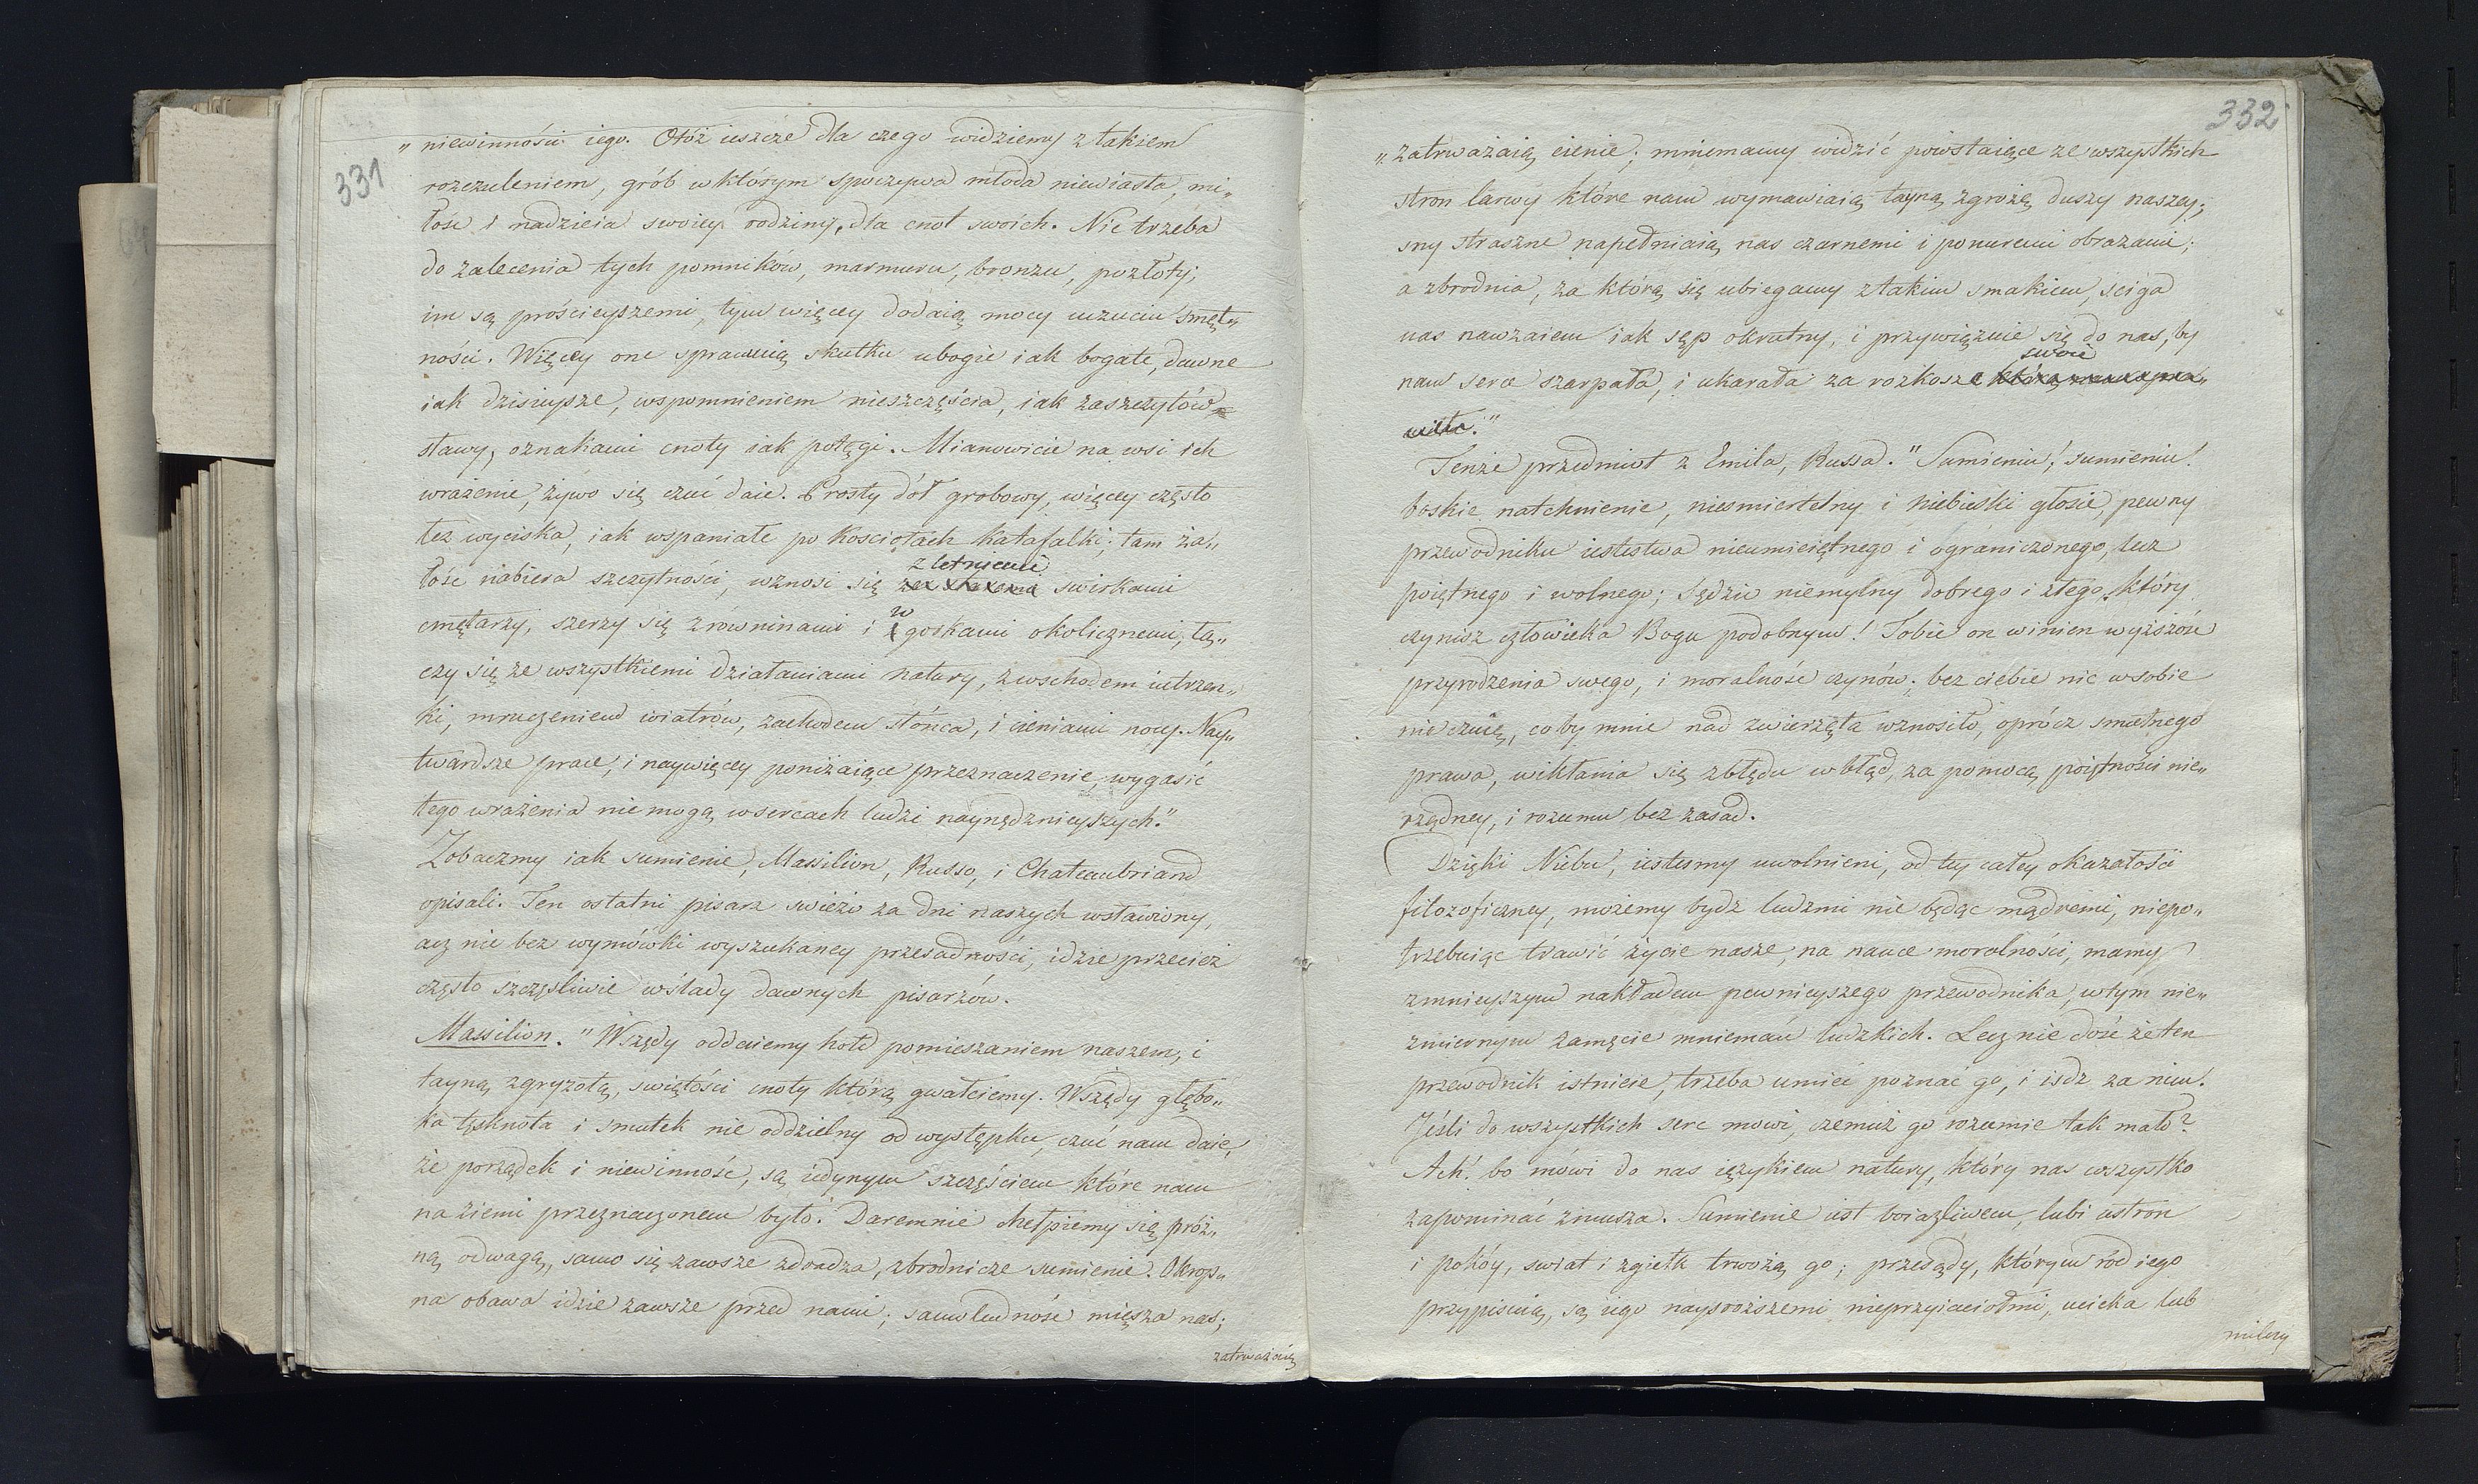 331
„niewinności iego. Otóż ieszcze dla czego widziemy z takiem
rozczuleniem, grób w którym spoczywa młoda niewiasta, mi„
łość i nadzieia swoiey rodziny, dla cnot swoich. Nie trzeba
do zalecenia tych pomników, marmuru, bronzu, pozłoty;
im są prościeyszemi, tym więcey dodaią mocy uczuciu smęt„
ności. Więcey one sprawuią skutku ubogie iak bogate, dawne
iak dzisieysze, wspomnieniem nieszczęścia, iak zaszczytów
sławy, oznakami cnoty iak potęgi. Mianowicie na wsi ich
wrażenie, żywo się czuć daie. Prosty dół grobowy, więcey często
łez wyciska, iak wspaniałe po kosciołach katafalki; tam ża„
z letniemi
łość nabiera szczytności, wznosi się swirkami
w
cmętarzy, szerzy się z rowninami i zgoskami okolicznemi, łą„
czy się ze wszystkiemi działaniami natury, z wschodem iutrzen„
ki, mruczeniem wiatrów, zachodem słońca, i cieniami nocy. Nay„
twardsze prace, i naywięcey poniżaiące przeznaczenie, wygasić
tego wrażenia nie mogą w sercach ludzi naynędznieyszych."
Zobaczmy iak sumienie, Massilion, Russo, i Chateaubriand
opisali. Ten ostatni pisarz swieżo za dni naszych wsławiony,
acz nie bez wymówki wyszukaney przesadności, idzie przecież
często szczęsliwie w ślady dawnych pisarzów.
Massilion. "Wszędy oddaiemy hołd pomieszaniem naszem, i
tayną zgryzotą, swiętości cnoty którą gwałciemy. Wszędy głębo„
ka tęsknota i smutek nie oddzielny od występku, czuć nam daie,
że porządek i niewinność, są iedynym szczęściem które nam
na ziemi przeznaczonem było. Daremnie chełpiemy się próż„
ną odwagą, samo się zawsze zdradza, zbrodnicze sumienie. Okrop„
na obawa idzie zawsze przed nami; samoludność mięsza nas;
zatrważaią
332
„zatrważaią cienie; mniemamy widzić powstaiące ze wszystkich
stron larwy które nam wymawiaią tayną zgrożę duszy naszey;
sny straszne napełniaią nas czarnemi i ponuremi obrazami;
a zbrodnia, za którą się ubiegamy z takim smakiem, sciga
nas nawzaiem iak sęp okrutny, i przywięzuie się do nas, by
swoie
nam serce szarpała, i ukarała za rozkosze którą nam spra„
wiła."
Tenże przedmiot z Emila, Russa. "Sumieniu! sumieniu!
boskie natchnienie, niesmiertelny i niebieski głosie, pewny
przewodniku iestestwa nieumieiętnego i ograniczonego, lecz
poiętnego i wolnego; sędzio niemylny dobrego i złego, który
czynisz człowieka Bogu podobnym! Tobie on winien wyższość
przyrodzenia swego, i moralność czynów; bez ciebie nic w sobie
nie czuię, co by mnie nad zwierzęta wznosiło, oprócz smutnego
prawa, wikłania się z błędu w błąd, za pomocą poiętności nie„
rządney, i rozumu bez zasad.
Dzięki Niebu, iestesmy uwolnieni, od tey całey okazałości
filozoficzney, możemy bydz ludzmi nie będąc mądremi, niepo„
trzebuiąc trawić życie nasze, na nauce moralności, mamy
zmnieyszym nakładem pewnieyszego przewodnika, w tym nie„
zmiernym zamęcie mniemań ludzkich. Lecz nie dość że ten
przewodnik istnieie, trzeba umieć poznać go, i isdz za nim.
Jeśli do wszystkich serc mowi, czemuż go rozumie tak mało?
Ach! bo mówi do nas ięzykiem natury, który nas wszystko
zapominać zmusza. Sumienie iest boiazliwem, lubi ustron
i pokóy, swiat i zgiełk trwożą go; przesądy, którym ród iego
przypisuią, są iego naysroższemi nieprzyiaciołmi, ucieka lub
milczy